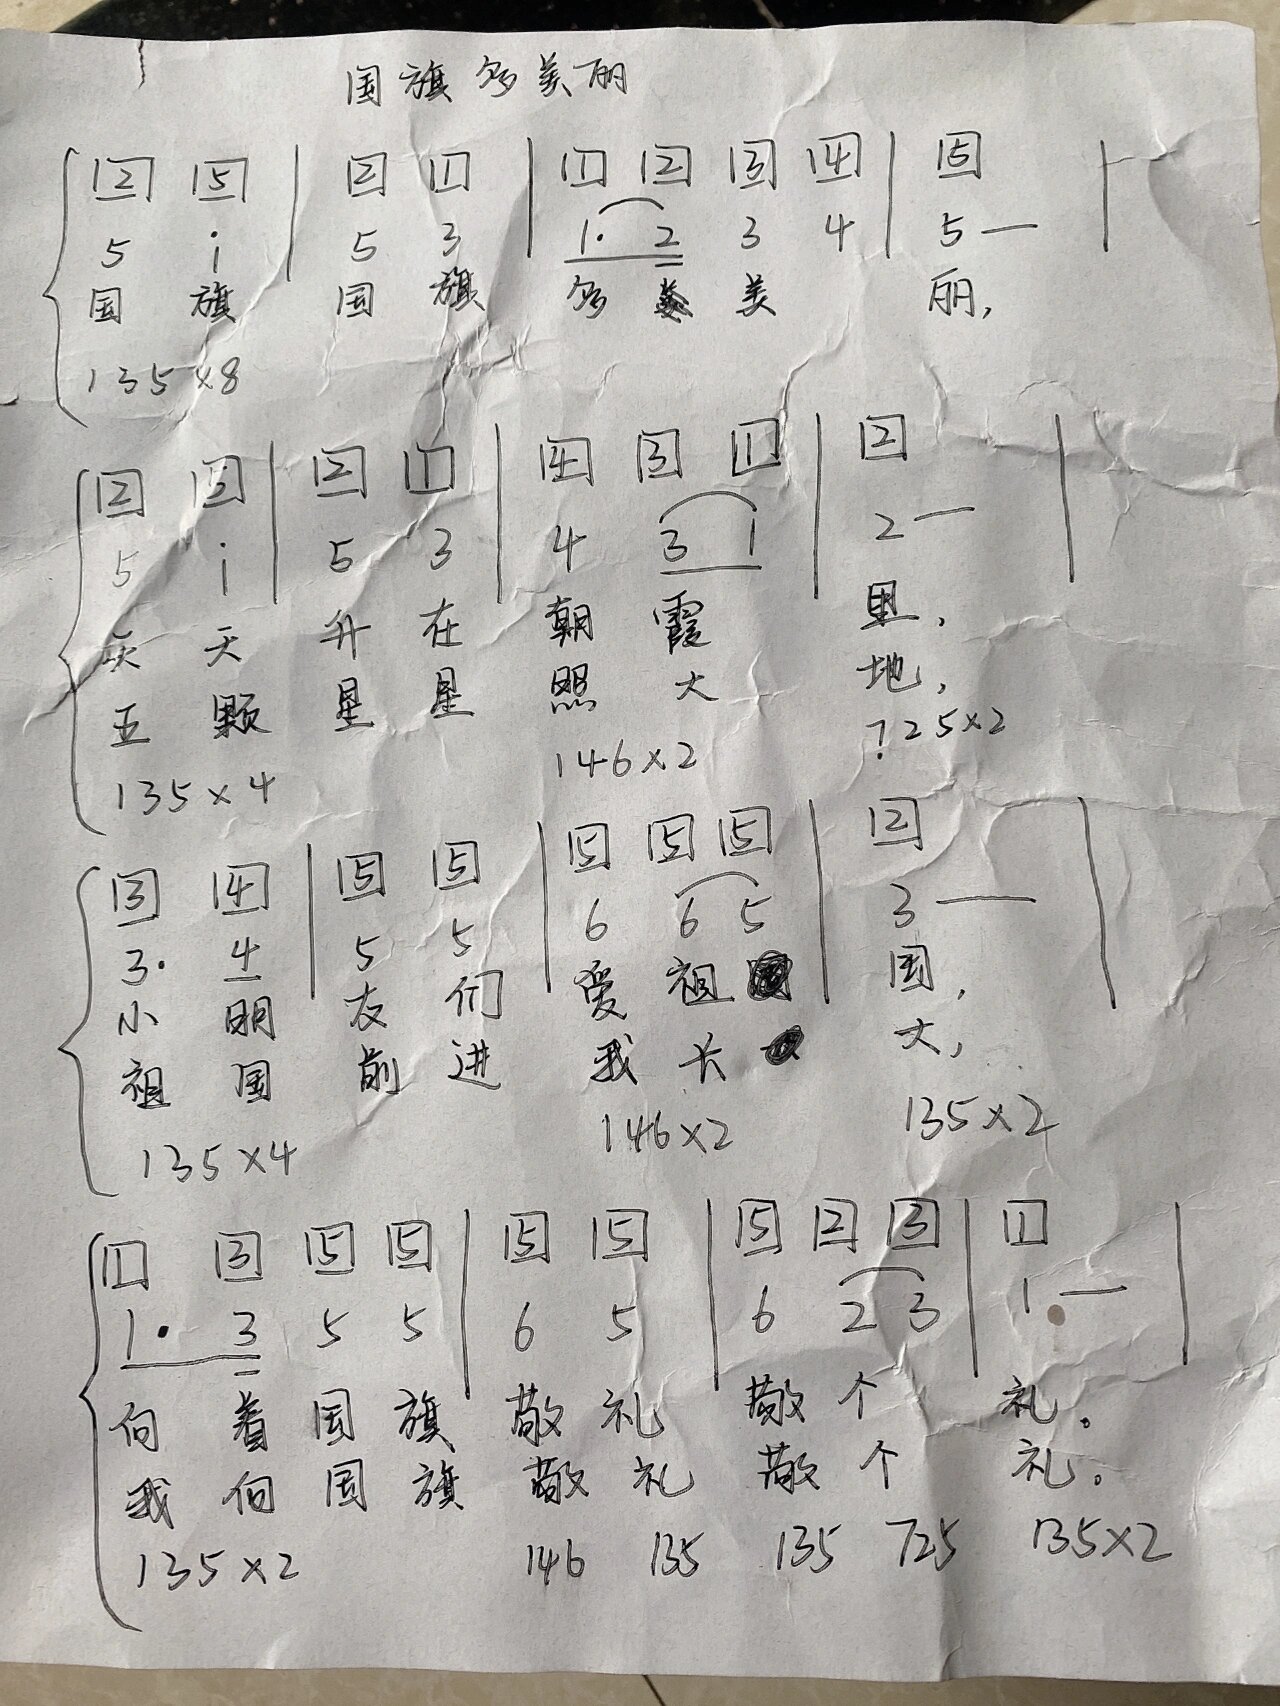 国旗多美丽
2 5 | 2 1 | 1 2 3 4 | 5 |
5 i | 5 3 | 1. 2 3 4 | 5 — |
国 旗 国 旗 多 美 丽,
135×8
2 5 | 2 1 | 4 3 1 | 2 |
5 i | 5 3 | 4 3 1 | 2 — |
天 天 升 在 朝 霞 里,
五 颗 星 星 照 大 地,
135×4 146×2 725×2
3 4 | 5 5 | 5 5 5 | 2 |
3. 4 | 5 5 | 6 6 5 | 3 — |
小 朋 友 们 爱 祖 国,
祖 国 前 进 我 长 大,
135×4 146×2 135×2
1 3 5 5 | 5 5 | 5 2 3 | 1 |
1. 3 5 5 | 6 5 | 6 2 3 | 1 — |
向 着 国 旗 敬 礼 敬 个 礼。
我 向 国 旗 敬 礼 敬 个 礼。
135×2 146 135 135 725 135×2